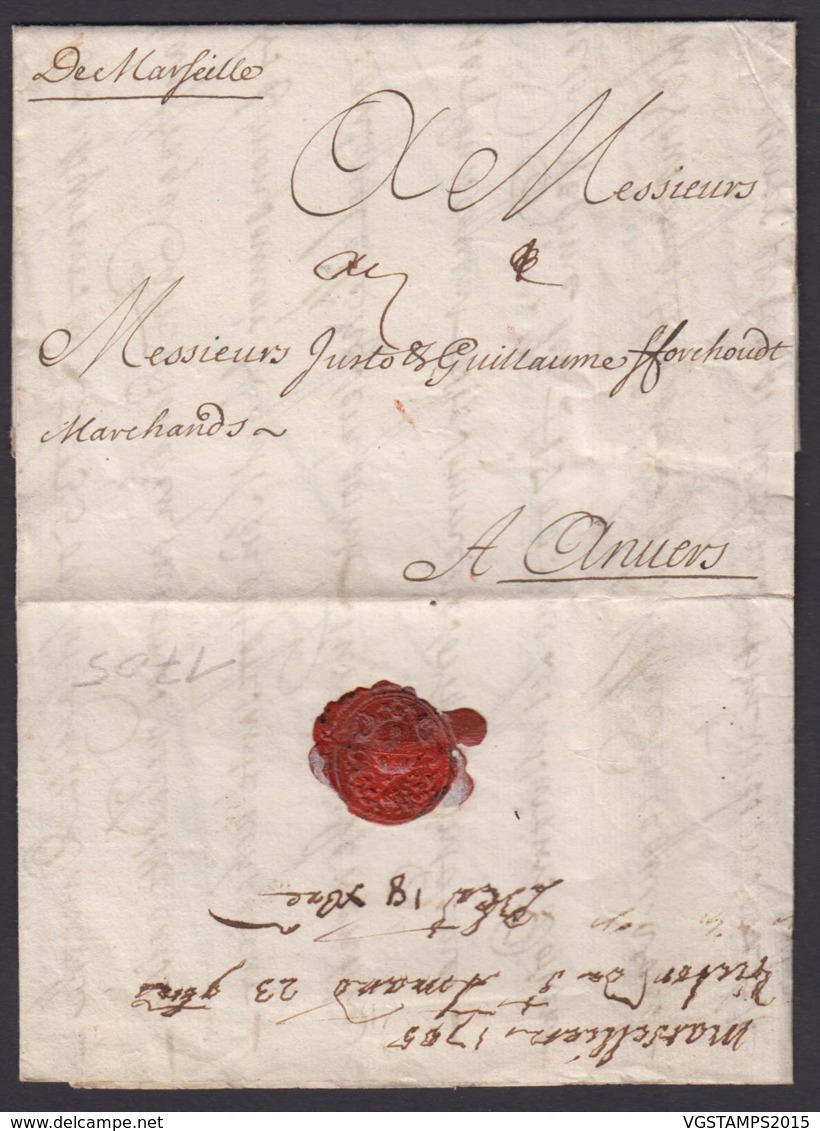 De Marseille
A Messieurs
Messieurs Justo & Guillaume fforchoudt
Marchands
A Anuers
1705
Marsellien 1705
Amand 23 9bre
18 xbre
VGSTAMPS2015